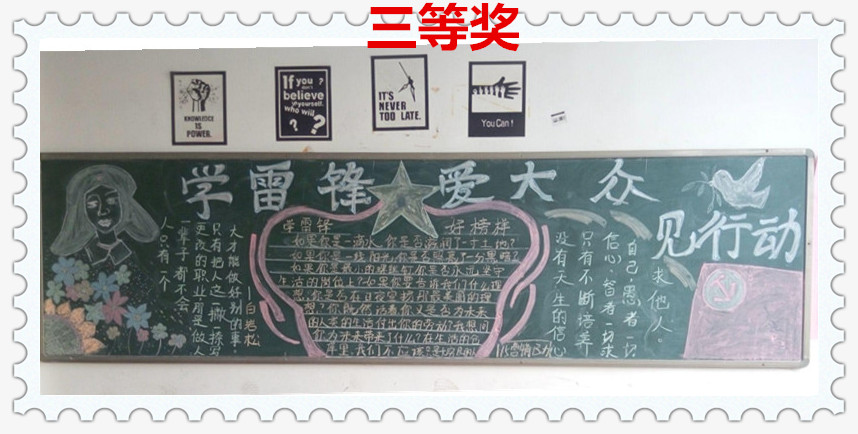 三等奖
KNOWLEDGE
IS
POWER.
If you
don't
believe
in yourself.
who will
?
IT'S
NEVER
TOO LATE.
You Can!
学雷锋 爱大众
见行动
人只有一个
一辈子都不会
更改的职业
只有把人这一撇一捺写
大才能做好别的事。
——白岩松
学雷锋 好榜样
如果你是一滴水,你是否滋润了一寸土地?
如果你是一线阳光,你是否照亮了一分黑暗?
如果你是最小的螺丝钉,你是否永远坚守
生活的岗位上?如果你要告诉我们什么理
想,你是否在日夜宣扬那最美丽的理
想?你既然活着,你又是否为未来
的人类的生活付出你的劳动?我想问
你为未来带来了什么?在生活的仓
库里,我们不应该
没有天生的信心
只有不断培养
信心。智者一切求
自己,愚者一切
求他人。